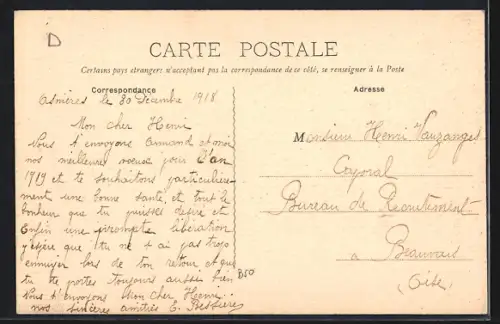 D
CARTE POSTALE
Certains pays étrangers n'acceptant pas la correspondance de ce côté, se renseigner à la Poste
Correspondance
Asnières le 30 Décembre 1918
Mon cher Henri
Nous t'envoyons Armand et moi
nos meilleurs voeux pour l'an
1919 et te souhaitons particulière
ment une bonne santé, et tout le
bonheur que tu puisses désiré et
Enfin une prompte libération
j'espère que tu ne t'ai pas trop
ennuyer lors de ton retour et que
tu te portes toujours aussi bien
Nous t'envoyons Mon cher Henri
nos sincères amitiés E. Bessière
B50
Adresse
Monsieur Henri Vauzanges
Caporal
Bureau de Recrutement
à Beauvais
(Oise)